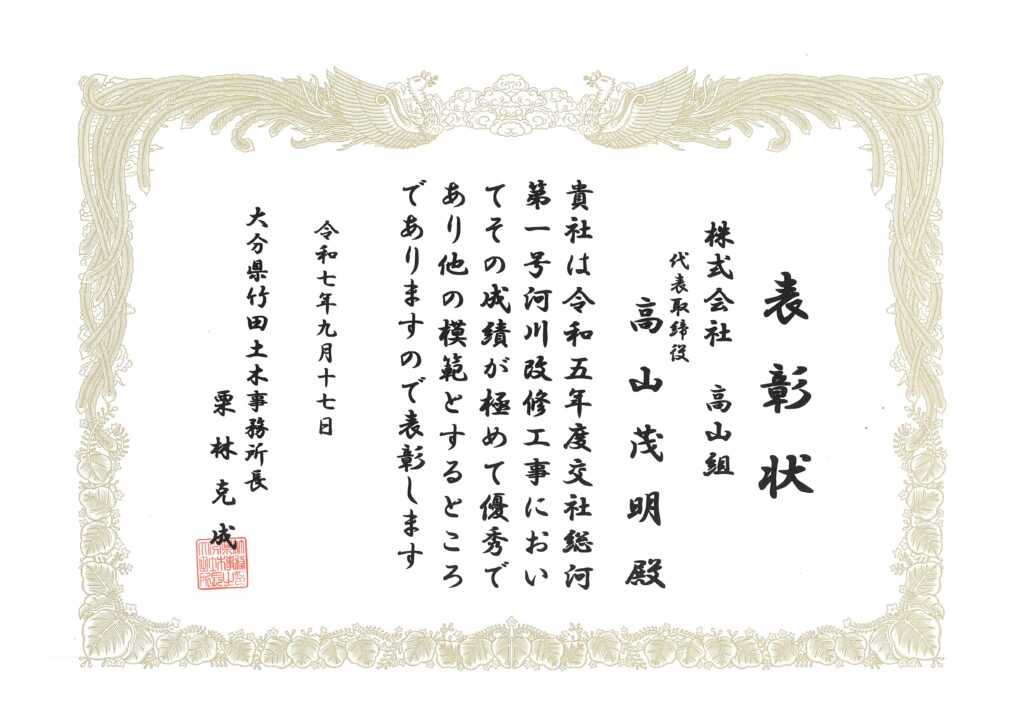 表彰状
株式会社 高山組
代表取締役
高山茂明殿
貴社は令和五年度交社総河
第一号河川改修工事におい
てその成績が極めて優秀で
あり他の模範とするところ
でありますので表彰します
令和七年九月十七日
大分県竹田土木事務所長
栗林克成